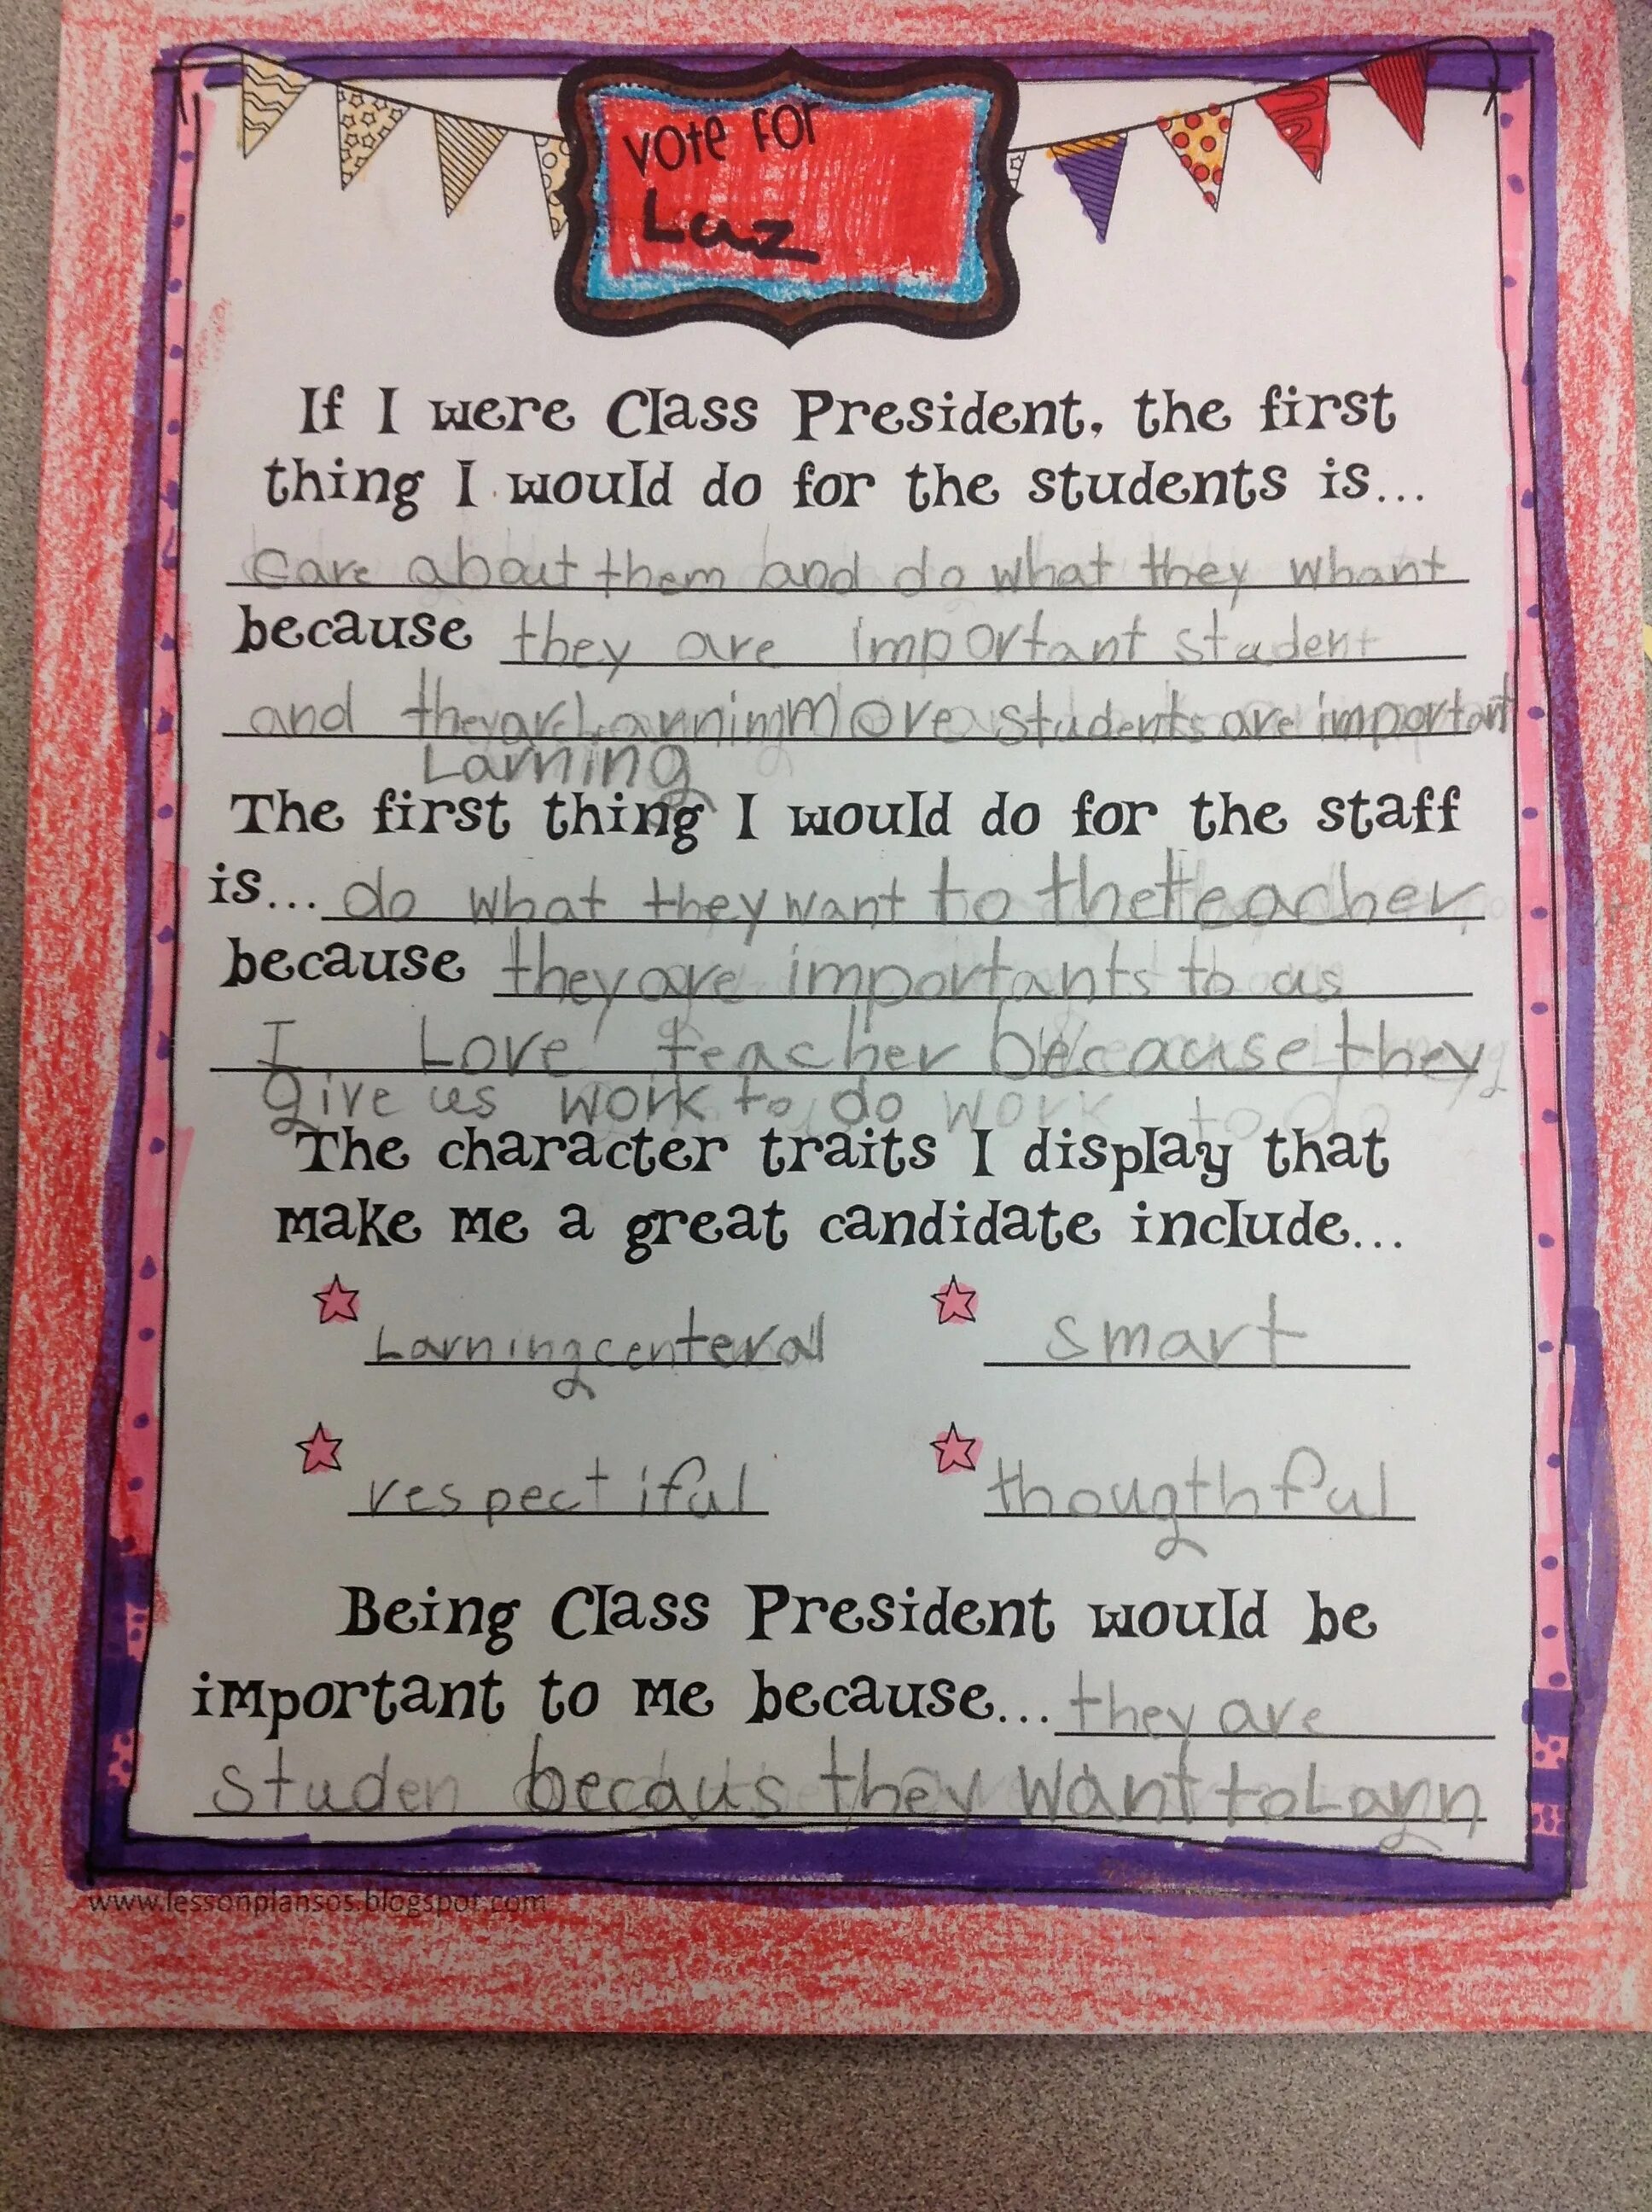 Vote for
Luz
If I were Class President, the first
thing I would do for the students is...
care about them and do what they whant
because they are important student
and they are Larnning more students are important
Larning
The first thing I would do for the staff
is... do what they want to the teacher
because they are importants to us
I Love teacher because they
give us work to do work to do
The character traits I display that
make me a great candidate include...
Larning smart
respectiful thougthful
Being Class President would be
important to me because... they are
studen becaus they want to Larn
www.lessonplansos.blogspot.com